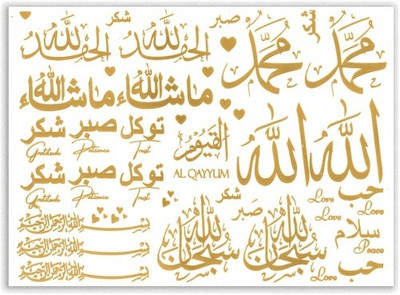 شكر
الحمد لله
الحمد لله
صبر
شكر
محمد
محمد
ما شاء الله
ما شاء الله
شكر صبر توكل
Gratitude Patience Trust
شكر صبر توكل
Gratitude Patience Trust
القيوم
AL QAYYUM
الله
الله
شكر
صبر
حب
Love
Love
Love
حب
Love
سلام
Peace
بسم الله الرحمن الرحيم
بسم الله الرحمن الرحيم
بسم الله الرحمن الرحيم
سبحان الله
سبحان الله